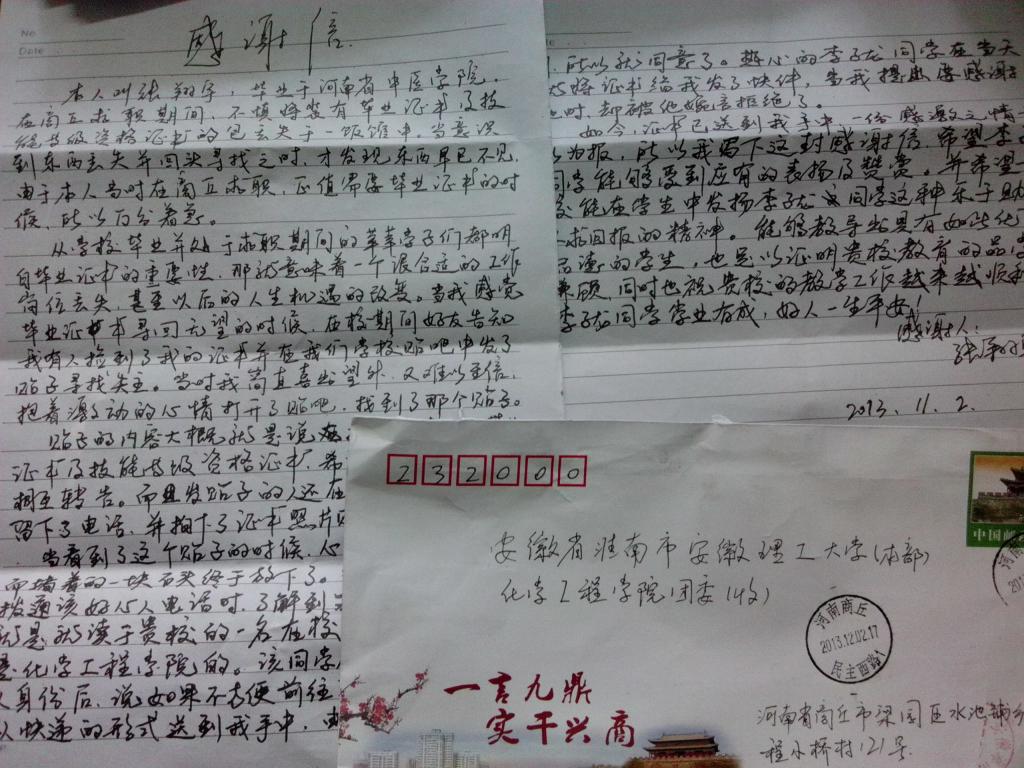 No
Date
感谢信
本人叫张翔宇，毕业于河南省中医学院，
在商丘求职期间，不慎将装有毕业证书及技
能等级资格证书的包丢失于一饭馆中，当意识
到东西丢失并回来寻找之时，才发现东西早已不见，
由于本人当时在商丘求职，正值需要毕业证书的时
候，所以万分着急。
从学校毕业并处于求职期间的莘莘学子们都明
白毕业证书的重要性，那就意味着一个很合适的工作
岗位丢失，甚至以后的人生机遇的改变。当我感觉
毕业证书寻回无望的时候，在校期间好友告知
我有人捡到了我的证书并在我们学校贴吧中发了
贴子寻找失主。当时我简直喜出望外，又难以至信，
抱着激动的心情打开了贴吧，找到了那个贴子。
贴子的内容大概就是说
证书及技能等级资格证书，希
相互转告。而且发贴子的人还在
留下了电话，并拍下了证书照片
当看到了这个贴子的时候，心
而堵着的一块石头终于放下了。
拨通该好心人电话时，了解到
就是就读于贵校的一名在校
是化学工程学院的。该同学
人身份后，说如果不方便前往
以快递的形式送到我手中，由
所以就同意了。热心的李子龙同学在当天
将证书给我发了快件，当我提出要感谢
时，却被他婉言拒绝了。
如今，证书已送到我手中，一份感激之情
为报，所以我写下这封感谢信，希望李
同学能够受到应有的表扬及赞赏。并希望
能在学生中发扬李子龙同学这种乐于助
求回报的精神。能够教导出具有如此优
品德的学生，也足以证明贵校教育的品
兼顾，同时也祝贵校的教学工作越来越顺利
李子龙同学学业有成，好人一生平安！
感谢人：
2013．11．2．
232000
中国邮
安徽省淮南市安徽理工大学(本部)
化学工程学院团委(收)
河南商丘
2013.12.02.17
民主西路
一言九鼎
实干兴商
河南省商丘市梁园区水池铺乡
程小桥村121号